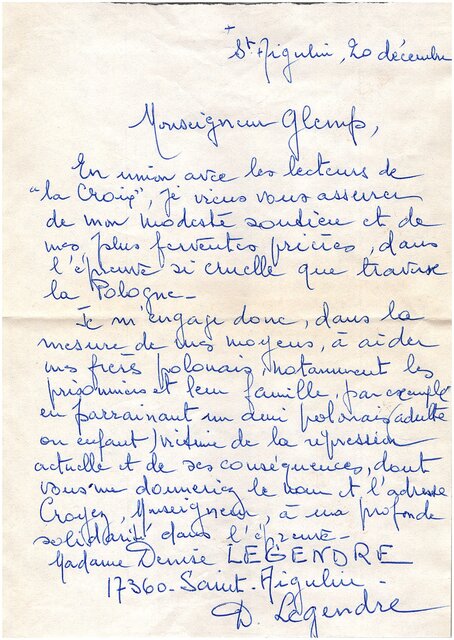 +
St Aigulin, 20 décembre
Monseigneur Glemp,
En union avec les lecteurs de
"la Croix", je viens vous assurer
de mon modeste soutien et de
mes plus ferventes prières, dans
l'épreuve si cruelle que traverse
la Pologne_
Je m'engage donc, dans la
mesure de mes moyens, à aider
mes frères polonais, notamment les
prisonniers et leur famille, par exemple
en parrainant un ami polonais (adulte
ou enfant) victime de la répression
actuelle et de ses conséquences, dont
vous me donneriez le nom et l'adresse
Croyez, Monseigneur, à ma profonde
solidarité dans l'épreuve_
Madame Denise LEGENDRE
17360_Saint_Aigulin_
D. Legendre